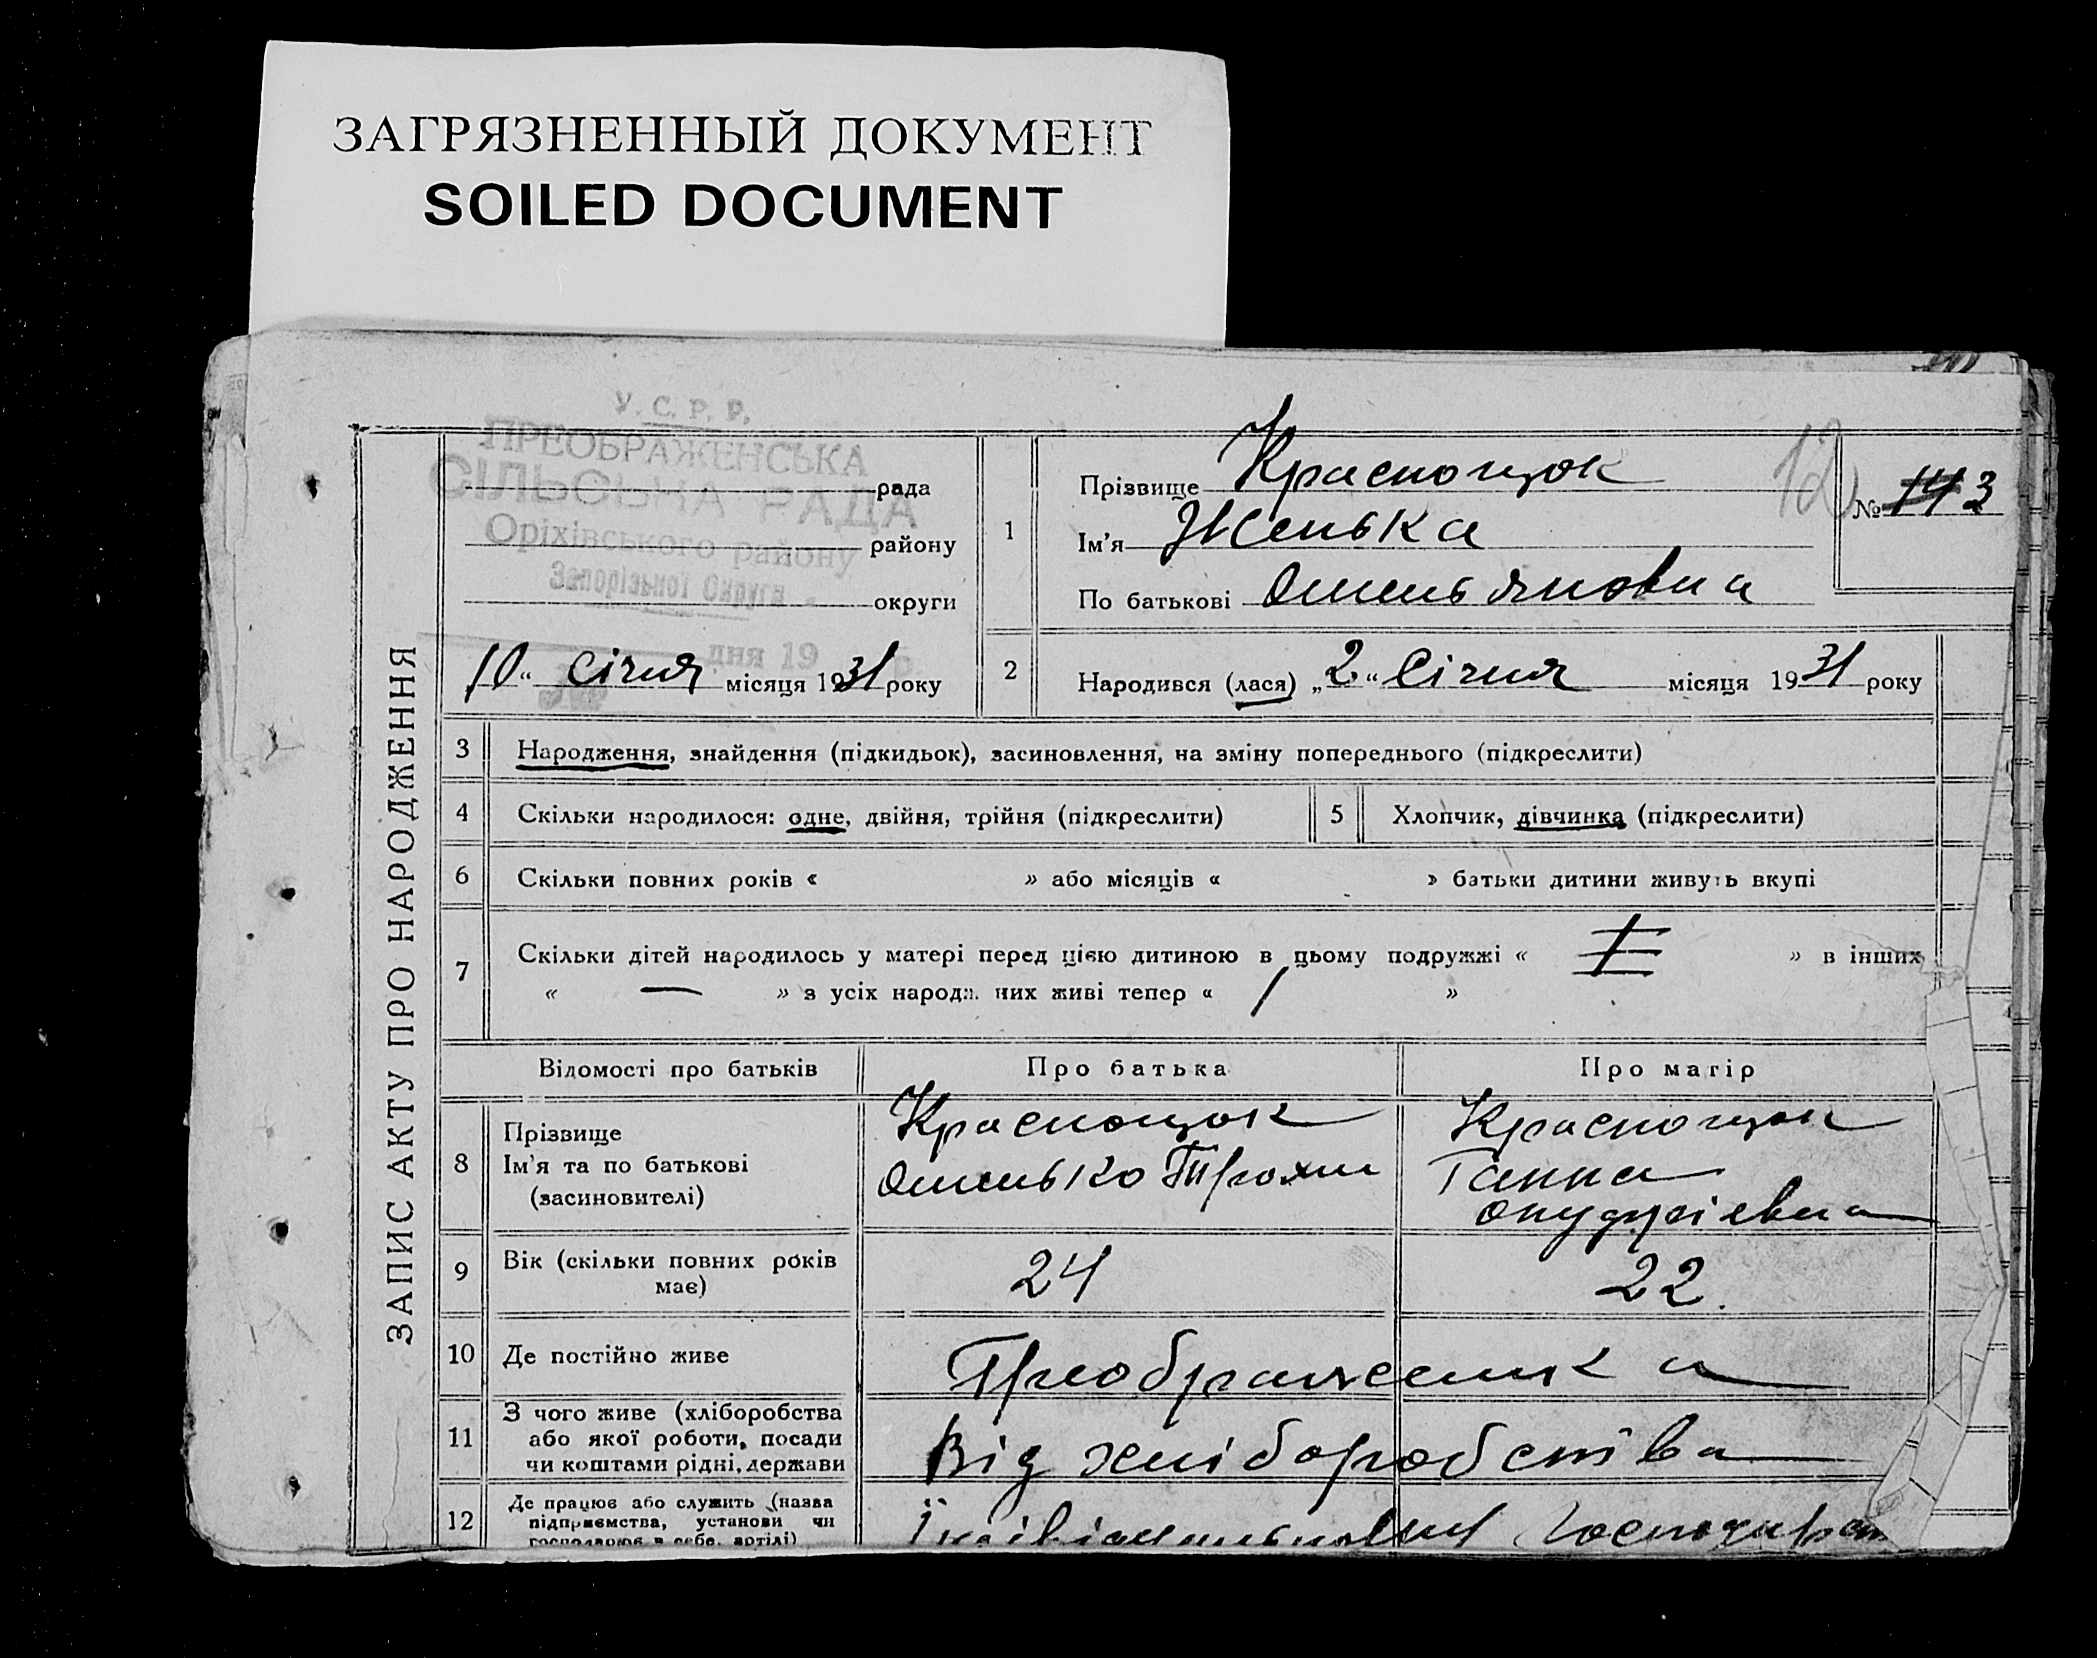 ЗАГРЯЗНЕННЫЙ ДОКУМЕНТ
SOILED DOCUMENT
У. С. Р. Р.
ПРЕОБРАЖЕНСЬКА
СІЛЬСЬКА РАДА
Оріхівського району
Запорізької Округи
дня 19 р.
рада
району
округи
10 " січня місяця 1931 року
ЗАПИС АКТУ ПРО НАРОДЖЕННЯ
12
№ 3
1 Прізвище Краснощок
Ім'я Женька
По батькові Омельяновна
2 Народився (лася) „ 2 " Січня місяця 1931 року
3 Народження, знайдення (підкидьок), засиновлення, на зміну попереднього (підкреслити)
4 Скільки народилося: одне, двійня, трійня (підкреслити)
5 Хлопчик, дівчинка (підкреслити)
6 Скільки повних років « » або місяців « » батьки дитини живуть вкупі
7 Скільки дітей народилось у матері перед цією дитиною в цьому подружжі « I » в інших
« — » з усіх народж. них живі тепер « / »
Відомості про батьків Про батька Про матір
8 Прізвище Краснощок Краснощок
Ім'я та по батькові Омелько Трохим Ганна
(засиновителі) Онуфріевна
9 Вік (скільки повних років має) 24 22.
10 Де постійно живе Преображенка
11 З чого живе (хліборобства
або якої роботи, посади
чи коштами рідні, держави
Від хліборобства
12 Де працює або служить (назва
підприємства, установи чи
господарює в себе, артілі)